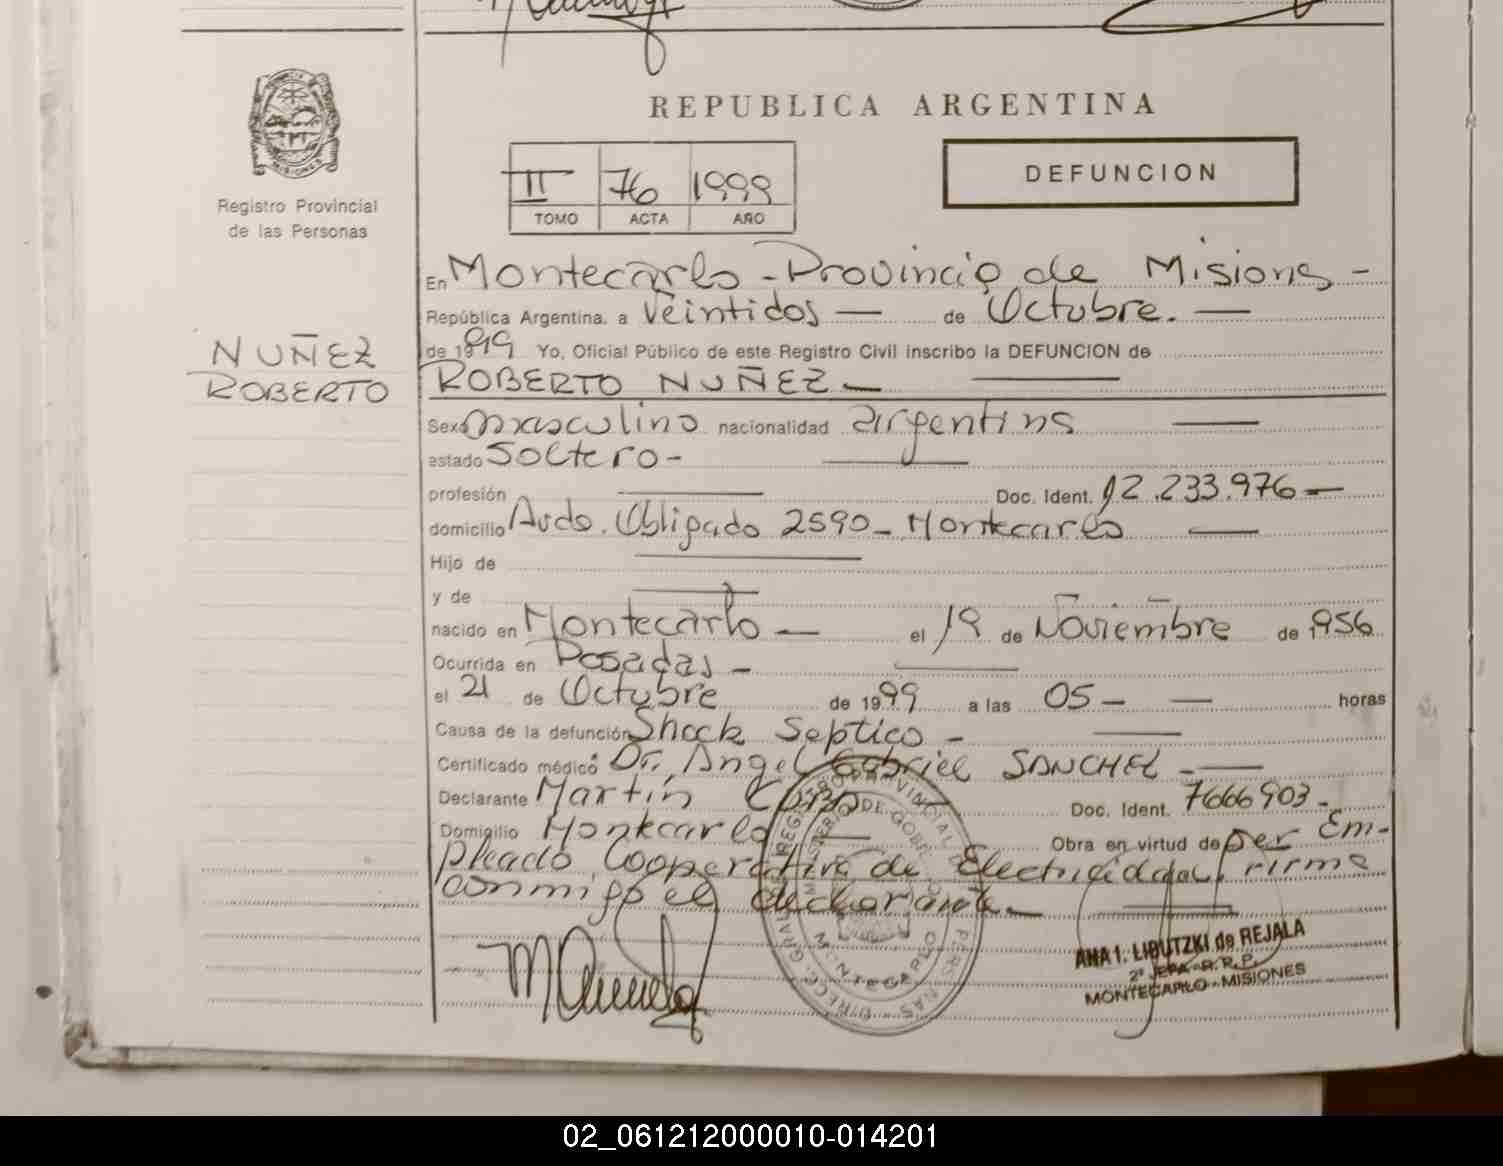 REPUBLICA ARGENTINA
PROVINCIA
MISIONES
Registro Provincial
de las Personas
II 76 1999
TOMO ACTA AÑO
DEFUNCION
En Montecarlo - Provincia de Misiones -
República Argentina, a Veintidos — de Octubre. —
de 1999 Yo, Oficial Público de este Registro Civil inscribo la DEFUNCION de
NUÑEZ
ROBERTO
ROBERTO NUÑEZ —
Sexo masculino nacionalidad argentina —
estado Soltero -
profesión — Doc. Ident. 12.233.976 —
domicilio Avda. Obligado 2590 - Montecarlo —
Hijo de —
y de —
nacido en Montecarlo — el 19 de Noviembre de 1956
Ocurrida en Posadas -
el 21 de Octubre de 1999 a las 05 - — horas
Causa de la defunción Shock Septico -
Certificado médico Dr. Angel Gabriel SANCHEZ -
Declarante Martín Doc. Ident. 7666903 -
Domicilio Montecarlo — Obra en virtud de ser Em-
pleado Cooperativa de Electricidad, firma
conmigo el declarante. —
MONTECARLO
ANA I. LIBUTZKI de REJALA
2° JEFA - R. R. P.
MONTECARLO - MISIONES
02_061212000010-014201